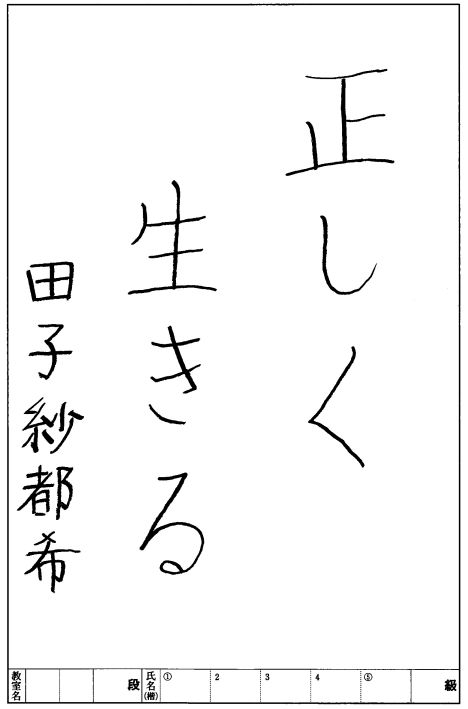 正しく
生きる
田子紗都希
教室名
段
氏名(楷)
① 2 3 4 ⑤
級